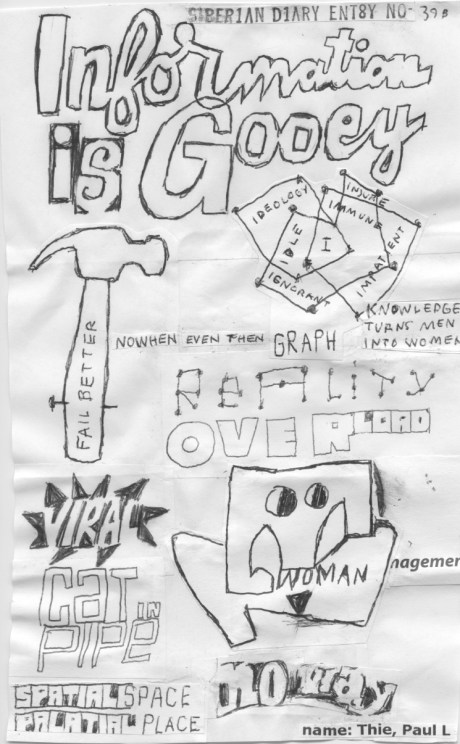 SIBERIAN DIARY ENT8Y NO- 39B
Information
is Gooey
IDEOLOGY
INJURE
IMMUNE
IDLE
I
IMPATIENT
IGNORANT
KNOWLEDGE
TURNS MEN
INTO WOMEN
FAIL BETTER
NOWHEN EVEN THEN GRAPH
REALITY
OVERLOAD
VIRAL
WOMAN
nagemen
CAT IN
PIPE
NO Way
SPATIAL SPACE
PALATIAL PLACE
name: Thie, Paul L